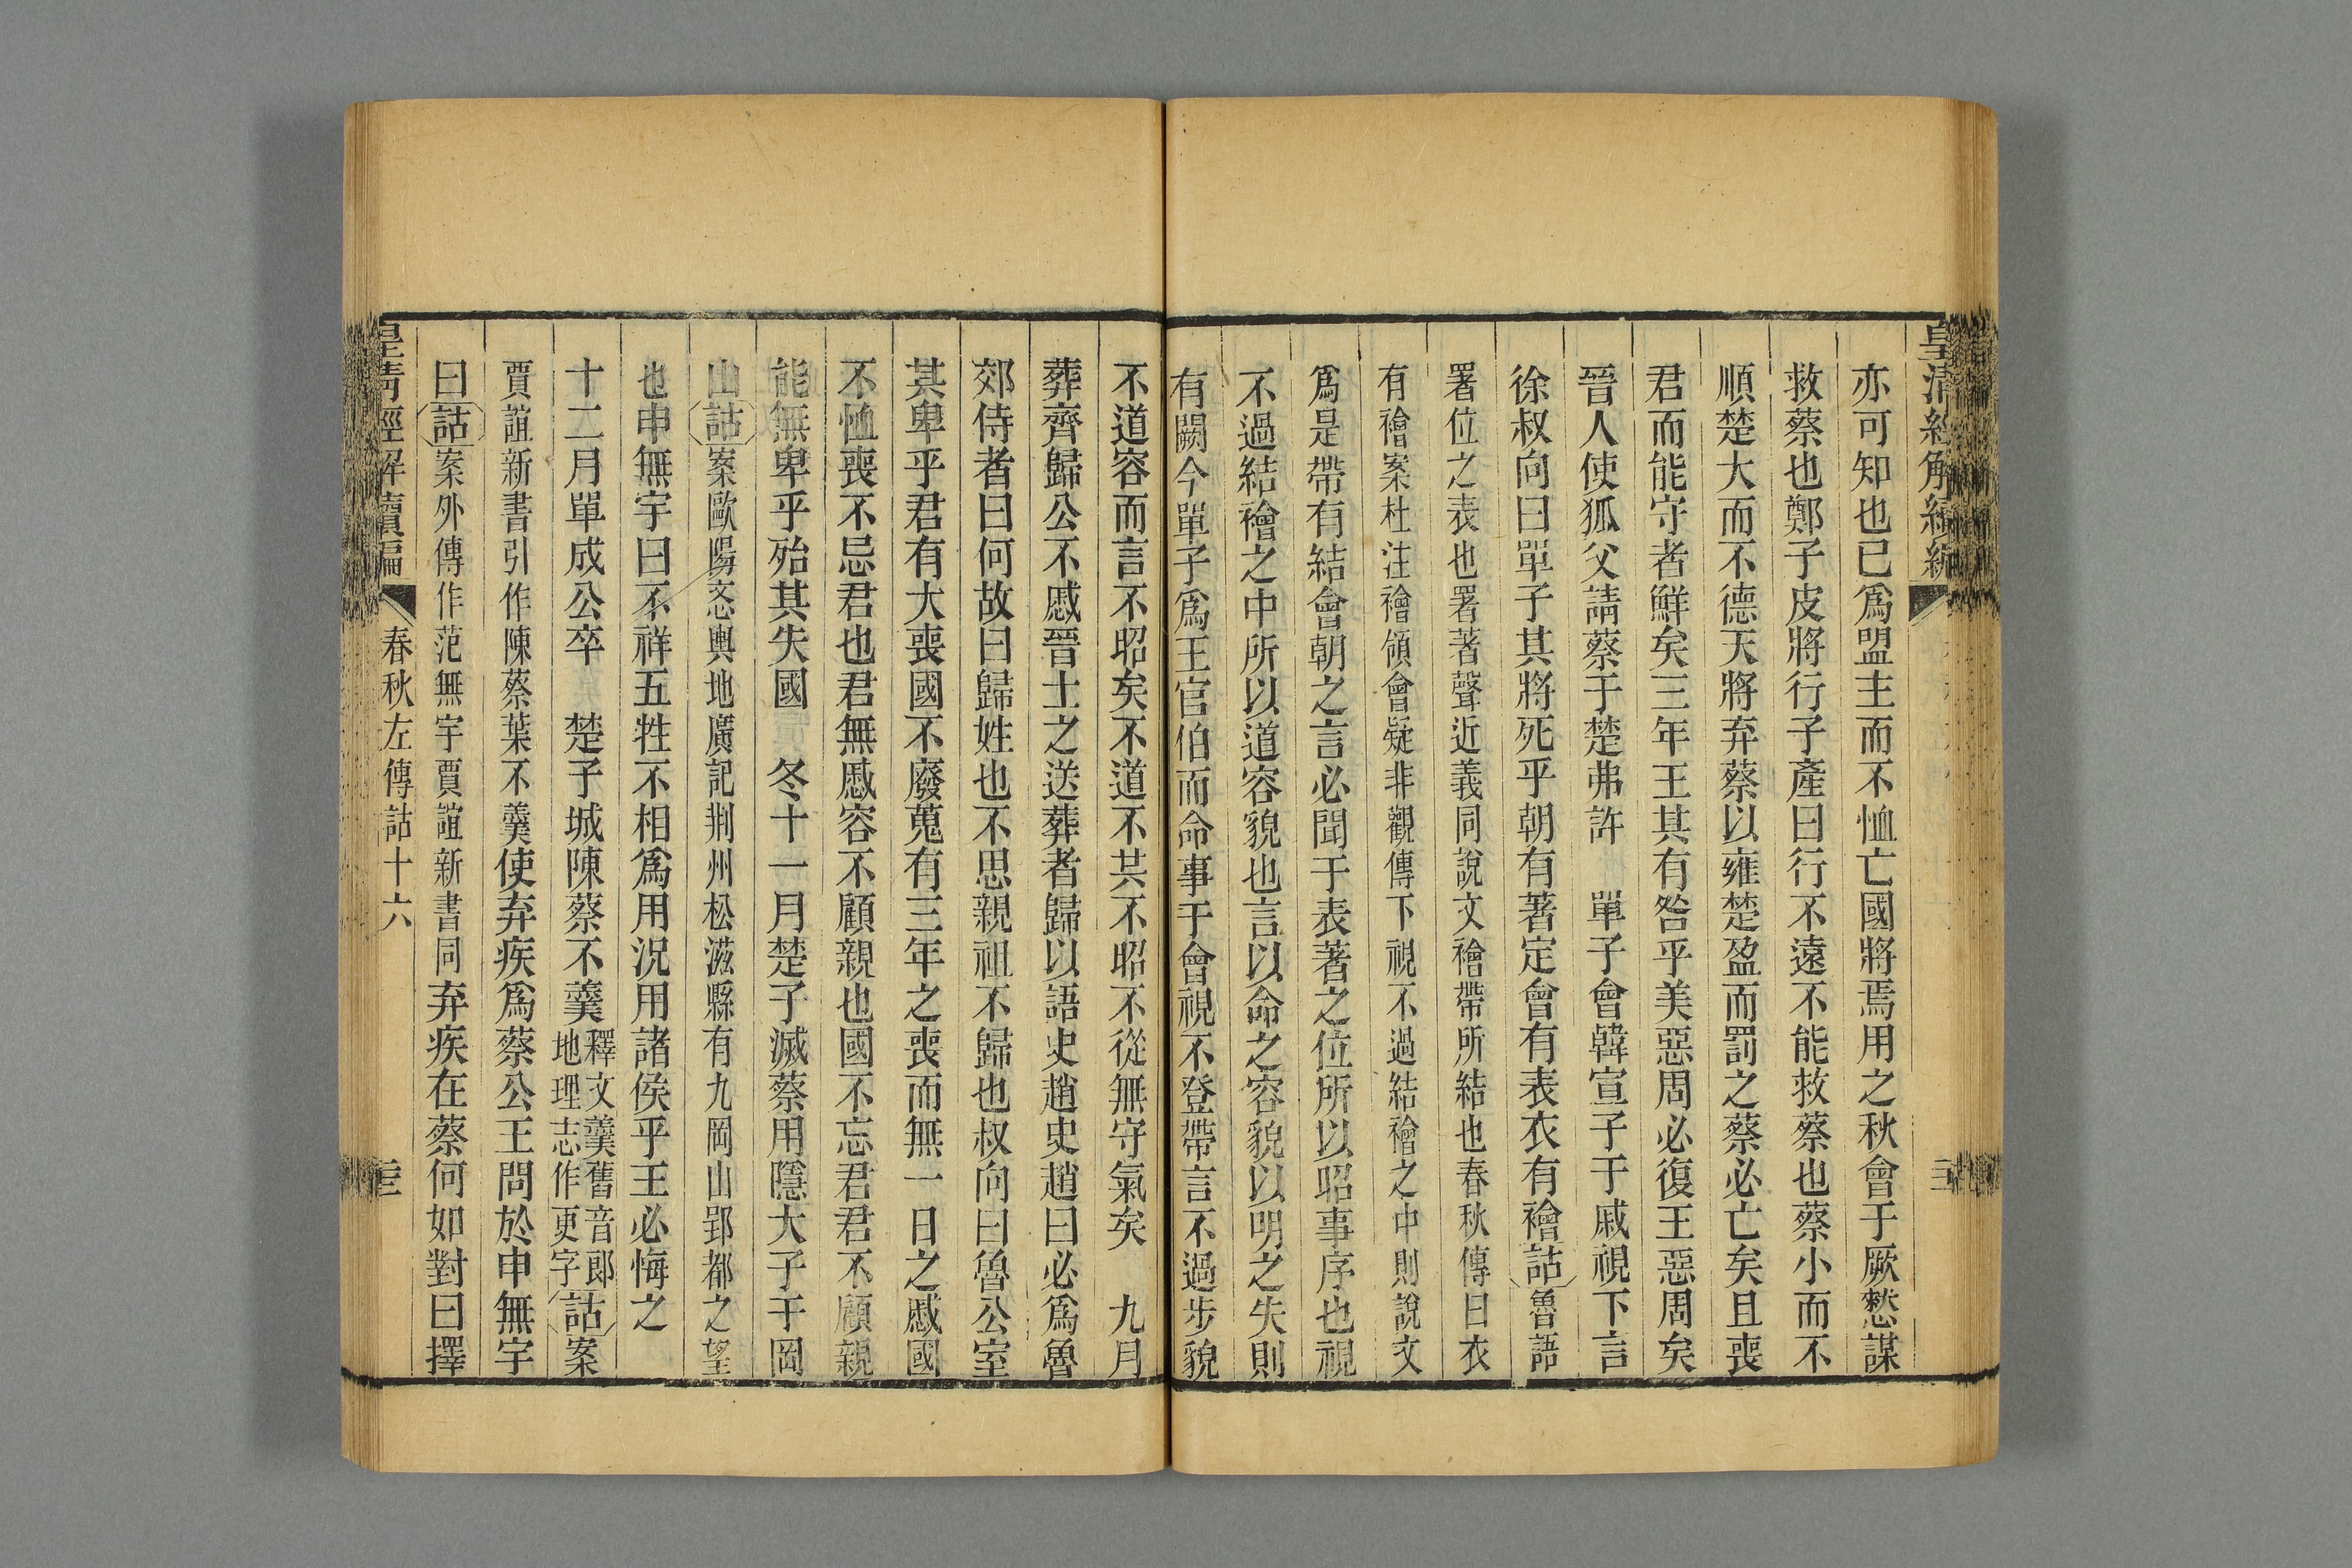 皇清經解續編
亦可知也已爲盟主而不恤亡國將焉用之秋會于厥憖謀
救蔡也鄭子皮將行子產曰行不遠不能救蔡也蔡小而不
順楚大而不德天將弃蔡以雍楚盈而罰之蔡必亡矣且喪
君而能守者鮮矣三年王其有咎乎美惡周必復王惡周矣
晉人使狐父請蔡于楚弗許　單子會韓宣子于戚視下言
徐叔向曰單子其將死乎朝有著定會有表衣有襘詁魯語
署位之表也署著聲近義同說文襘帶所結也春秋傳曰衣
有襘案杜注襘領會疑非觀傳下視不過結襘之中則說文
爲是帶有結會朝之言必聞于表著之位所以昭事序也視
不過結襘之中所以道容貌也言以命之容貌以明之失則
有闕今單子爲王官伯而命事于會視不登帶言不過步貌
不道容而言不昭矣不道不共不昭不從無守氣矣　九月
葬齊歸公不慼晉士之送葬者歸以語史趙史趙曰必爲魯
郊侍者曰何故曰歸姓也不思親祖不歸也叔向曰魯公室
其卑乎君有大喪國不廢蒐有三年之喪而無一日之慼國
不恤喪不忌君也君無慼容不顧親也國不忘君君不顧親
能無卑乎殆其失國　冬十一月楚子滅蔡用隱大子于岡
山詁案歐陽忞輿地廣記荆州松滋縣有九岡山郢都之望
也申無宇曰不祥五牲不相爲用況用諸侯乎王必悔之
十二月單成公卒　楚子城陳蔡不羹釋文羹舊音郎地理志作更字詁案
賈誼新書引作陳蔡葉不羹使弃疾爲蔡公王問於申無宇
曰詁案外傳作范無宇賈誼新書同弃疾在蔡何如對曰擇
皇清經解續編　春秋左傳詁十六